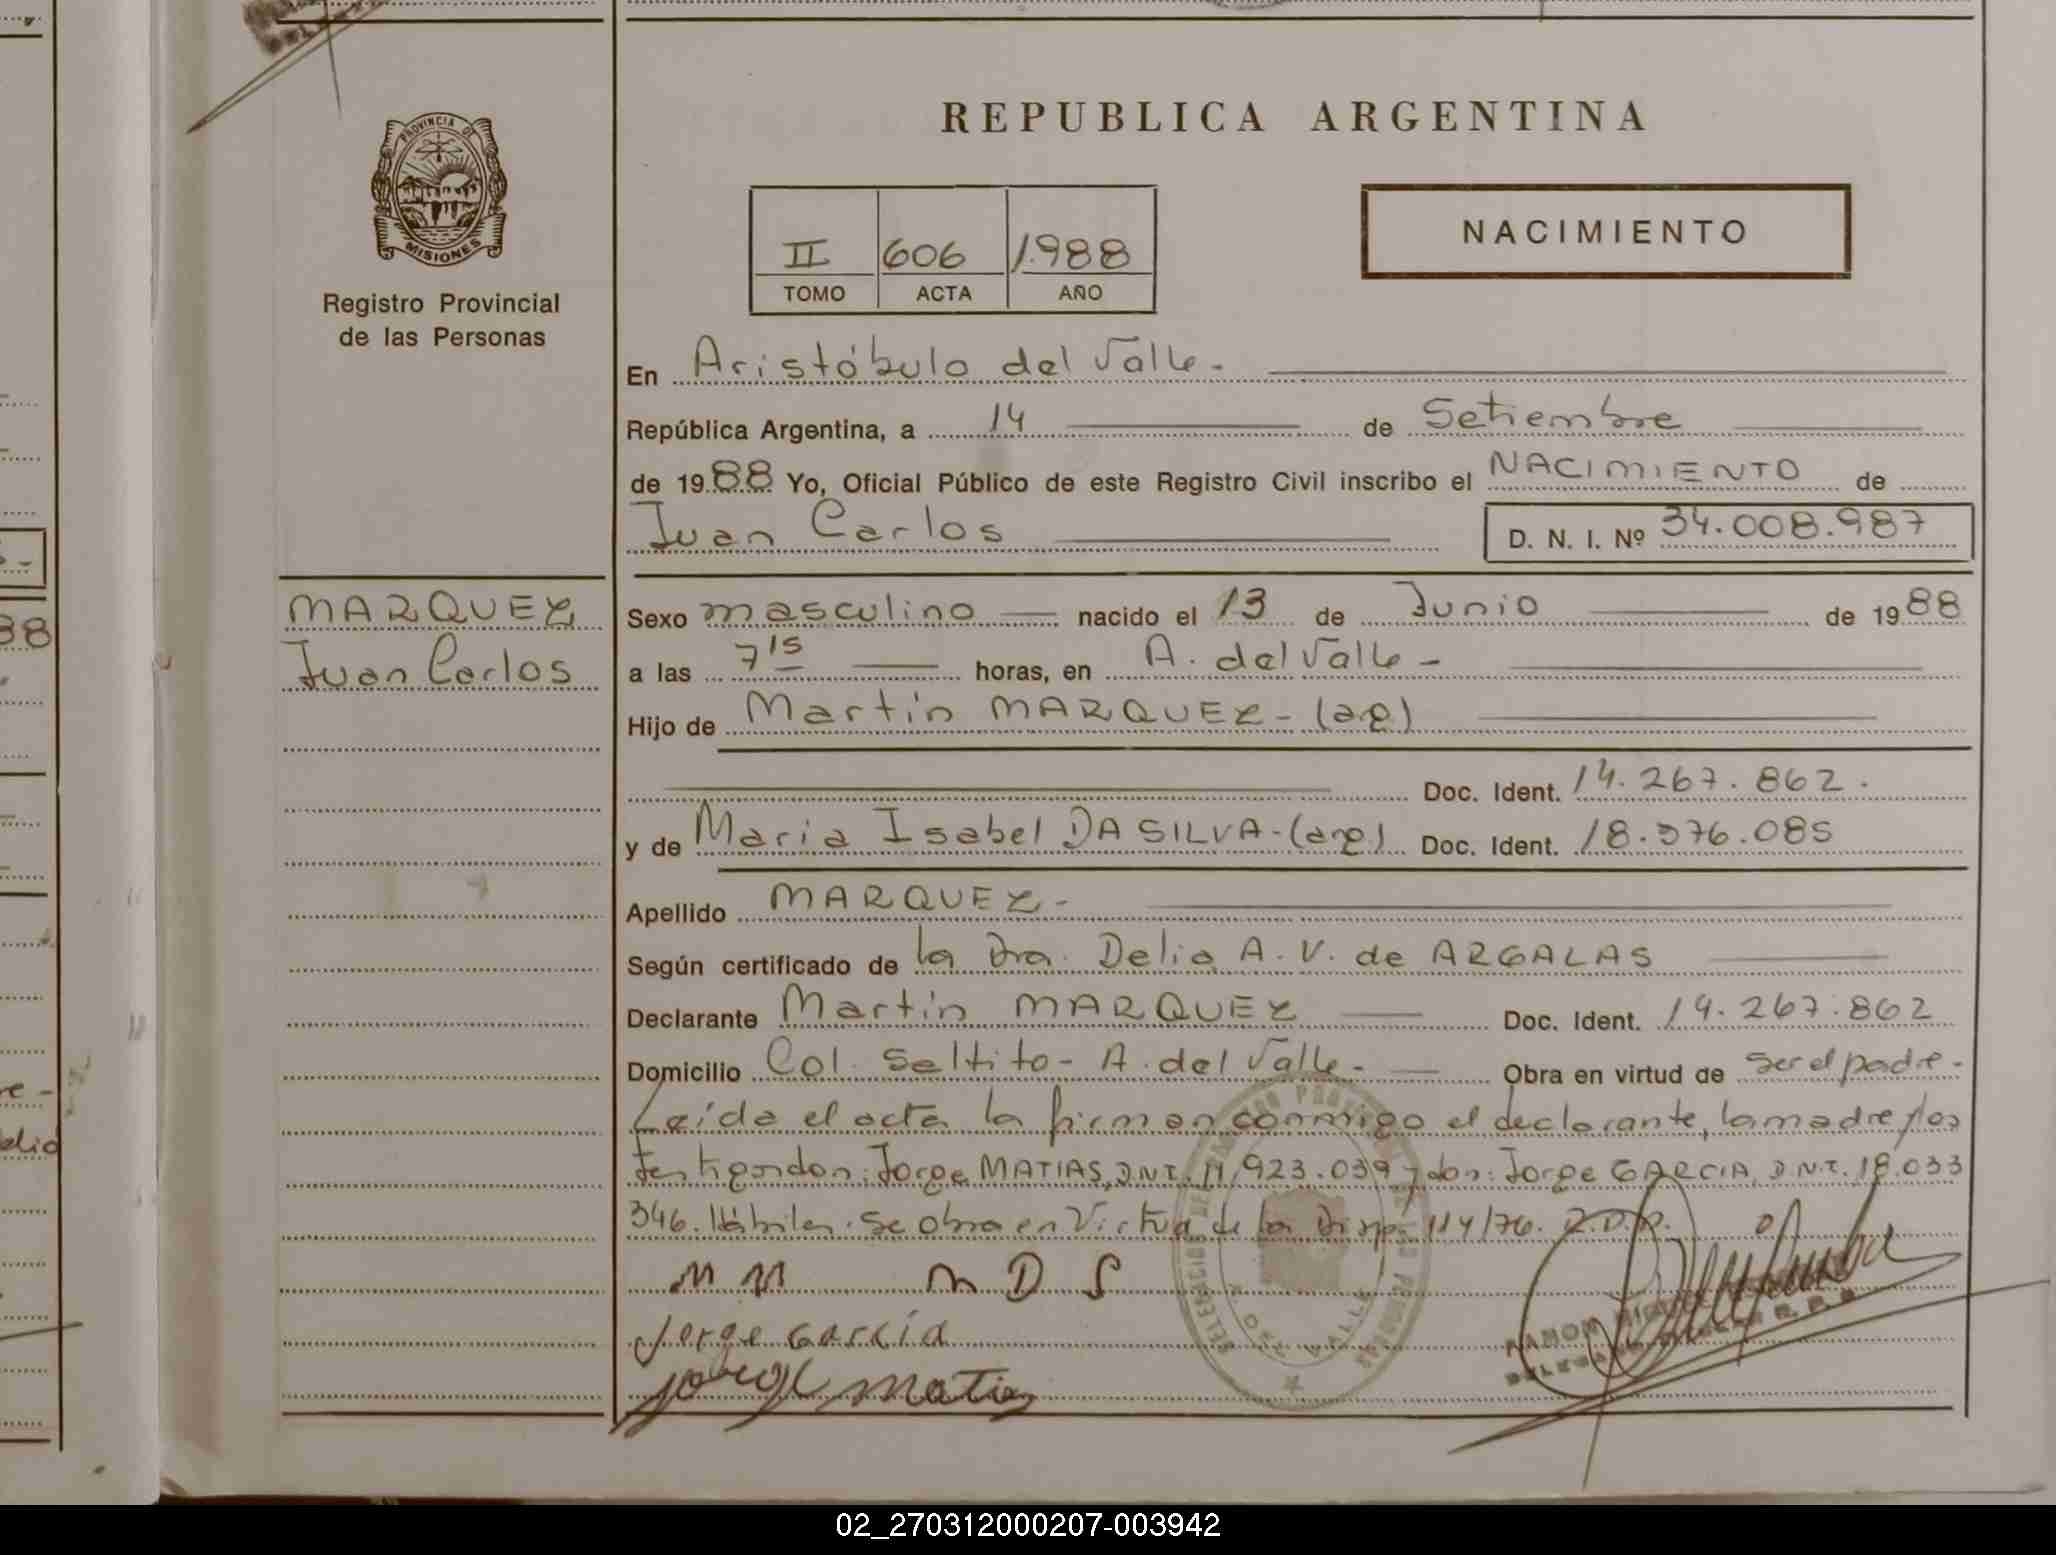 REPUBLICA ARGENTINA
PROVINCIA DE
MISIONES
Registro Provincial
de las Personas
II 606 1.988
TOMO ACTA AÑO
NACIMIENTO
En Aristóbulo del Valle.-
República Argentina, a 14 de Setiembre
de 1988 Yo, Oficial Público de este Registro Civil inscribo el NACIMIENTO de
Juan Carlos D. N. I. Nº 34.008.987
MARQUEZ
Juan Carlos
Sexo masculino nacido el 13 de Junio de 1988
a las 7 15 horas, en A. del Valle -
Hijo de Martín MARQUEZ - (arg)
Doc. Ident. 14.267.862.
y de Maria Isabel DA SILVA - (arg) Doc. Ident. 18.376.085
Apellido MARQUEZ -
Según certificado de la Dra. Delia A. V. de ARGALAS
Declarante Martín MARQUEZ Doc. Ident. 14.267.862
Domicilio Col. Saltito - A. del Valle - Obra en virtud de ser el padre -
Leída el acta la firman conmigo el declarante, la madre y los
testigos don: Jorge MATIAS, D.N.I. 11.923.039 y don: Jorge GARCIA, D.N.I. 18.033
346. Hábiles. Se obra en Virtud de la Disp. 114/76. R.D.R.
M M M D S
Jorge Garcia
Jorge Matias
A. DEL VALLE
RAMON
02_270312000207-003942